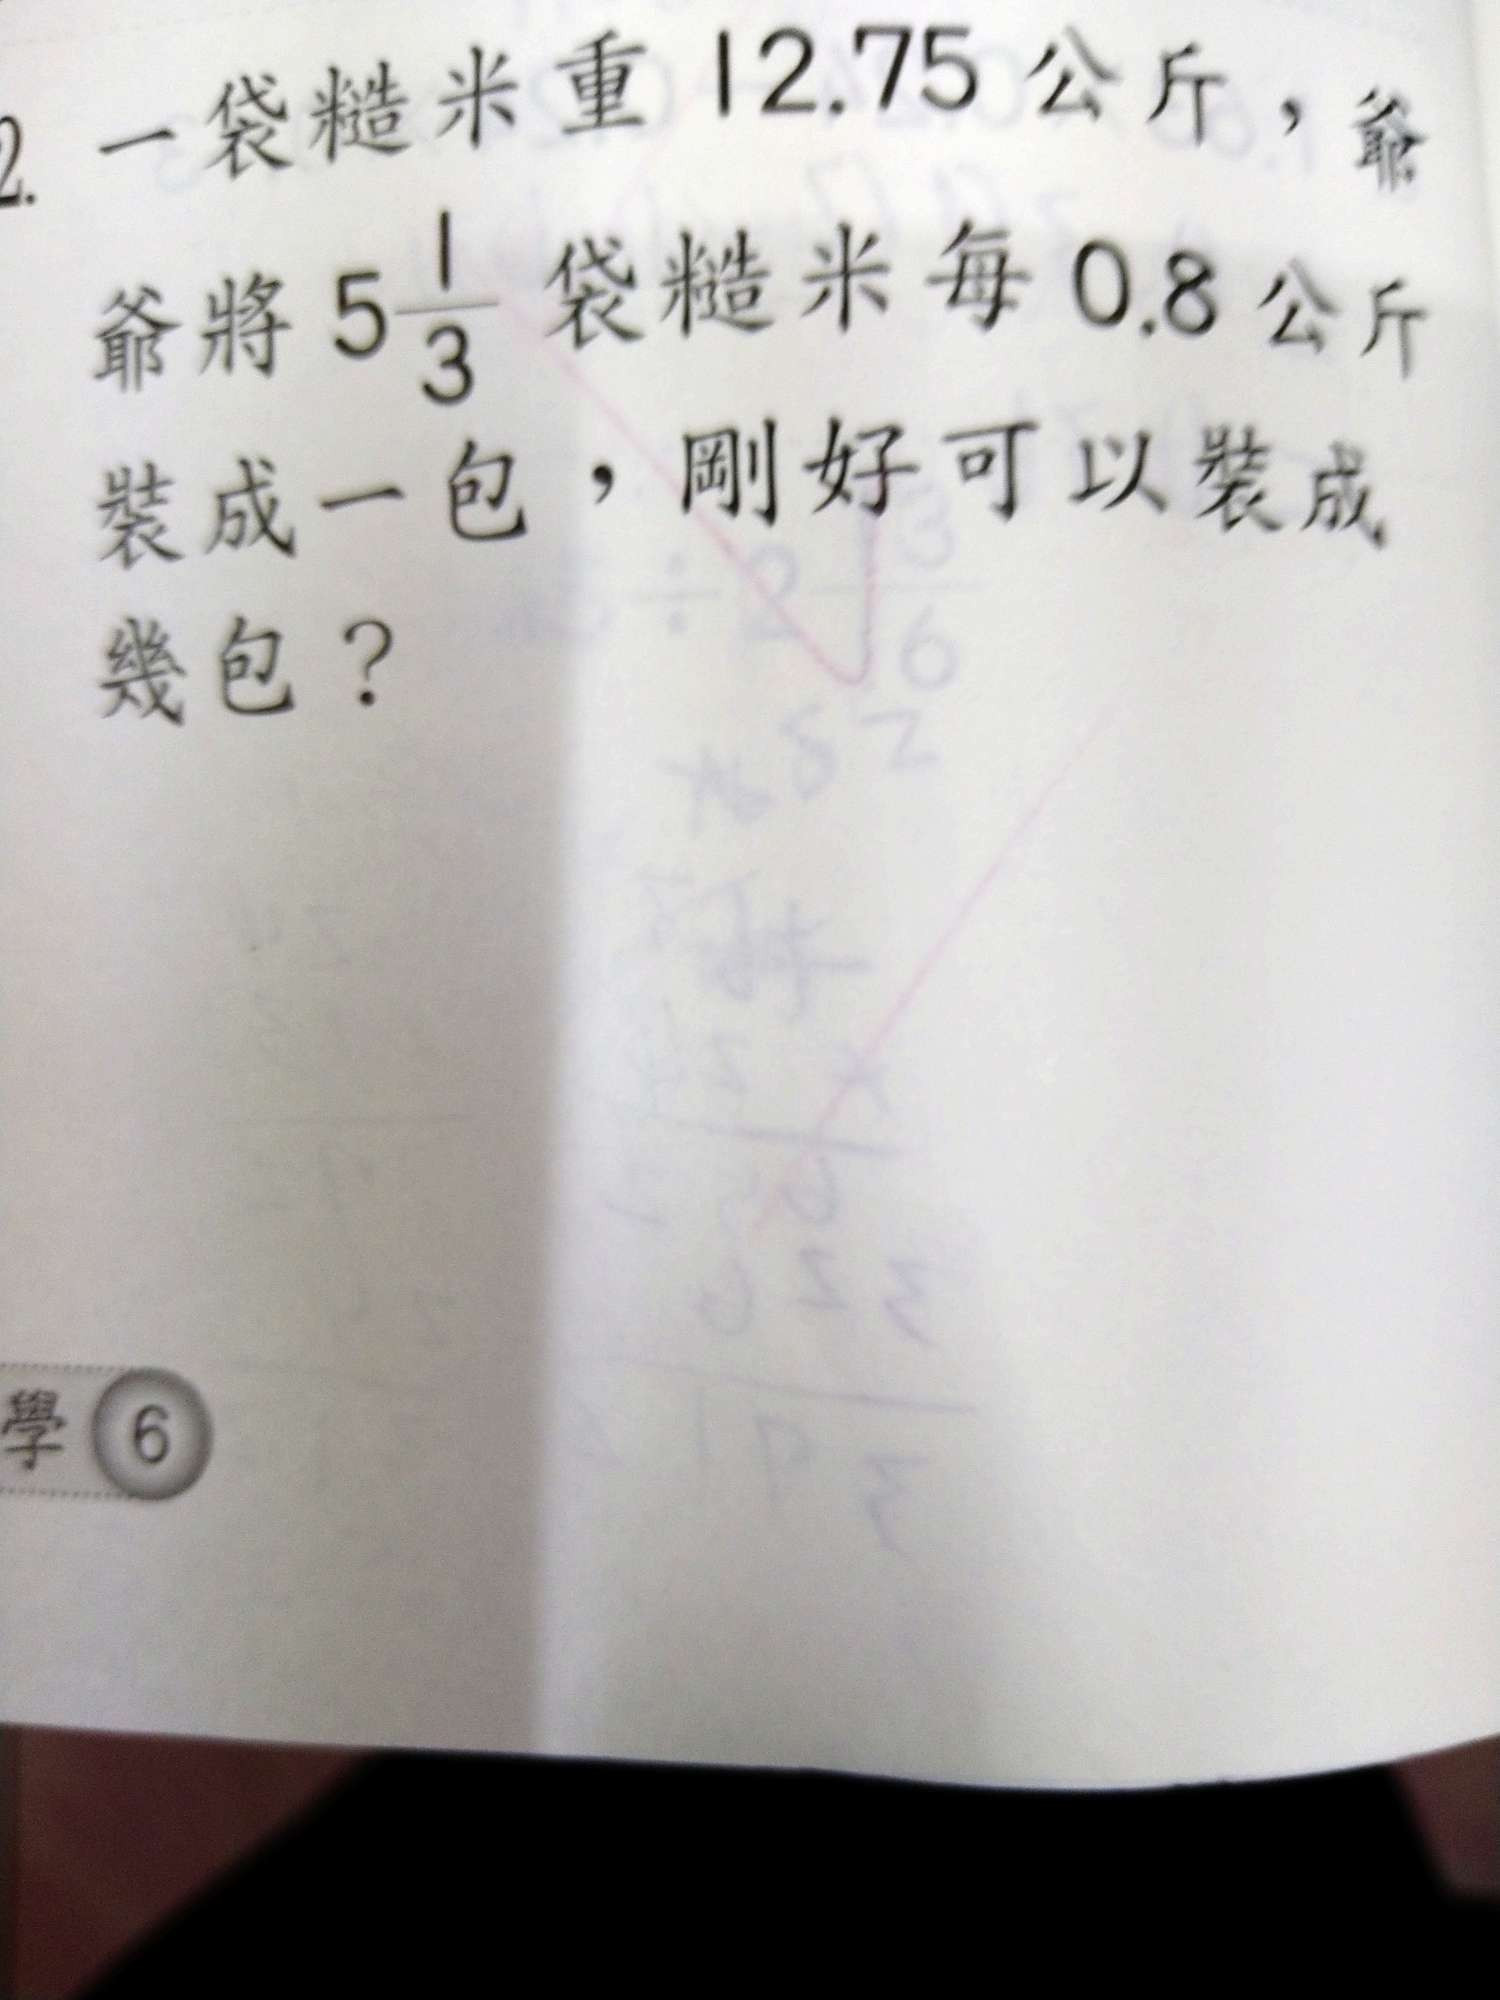 2. 一袋糙米重 12.75 公斤，爺
爺將 5 1/3 袋糙米每 0.8 公斤
裝成一包，剛好可以裝成
幾包？
學 6